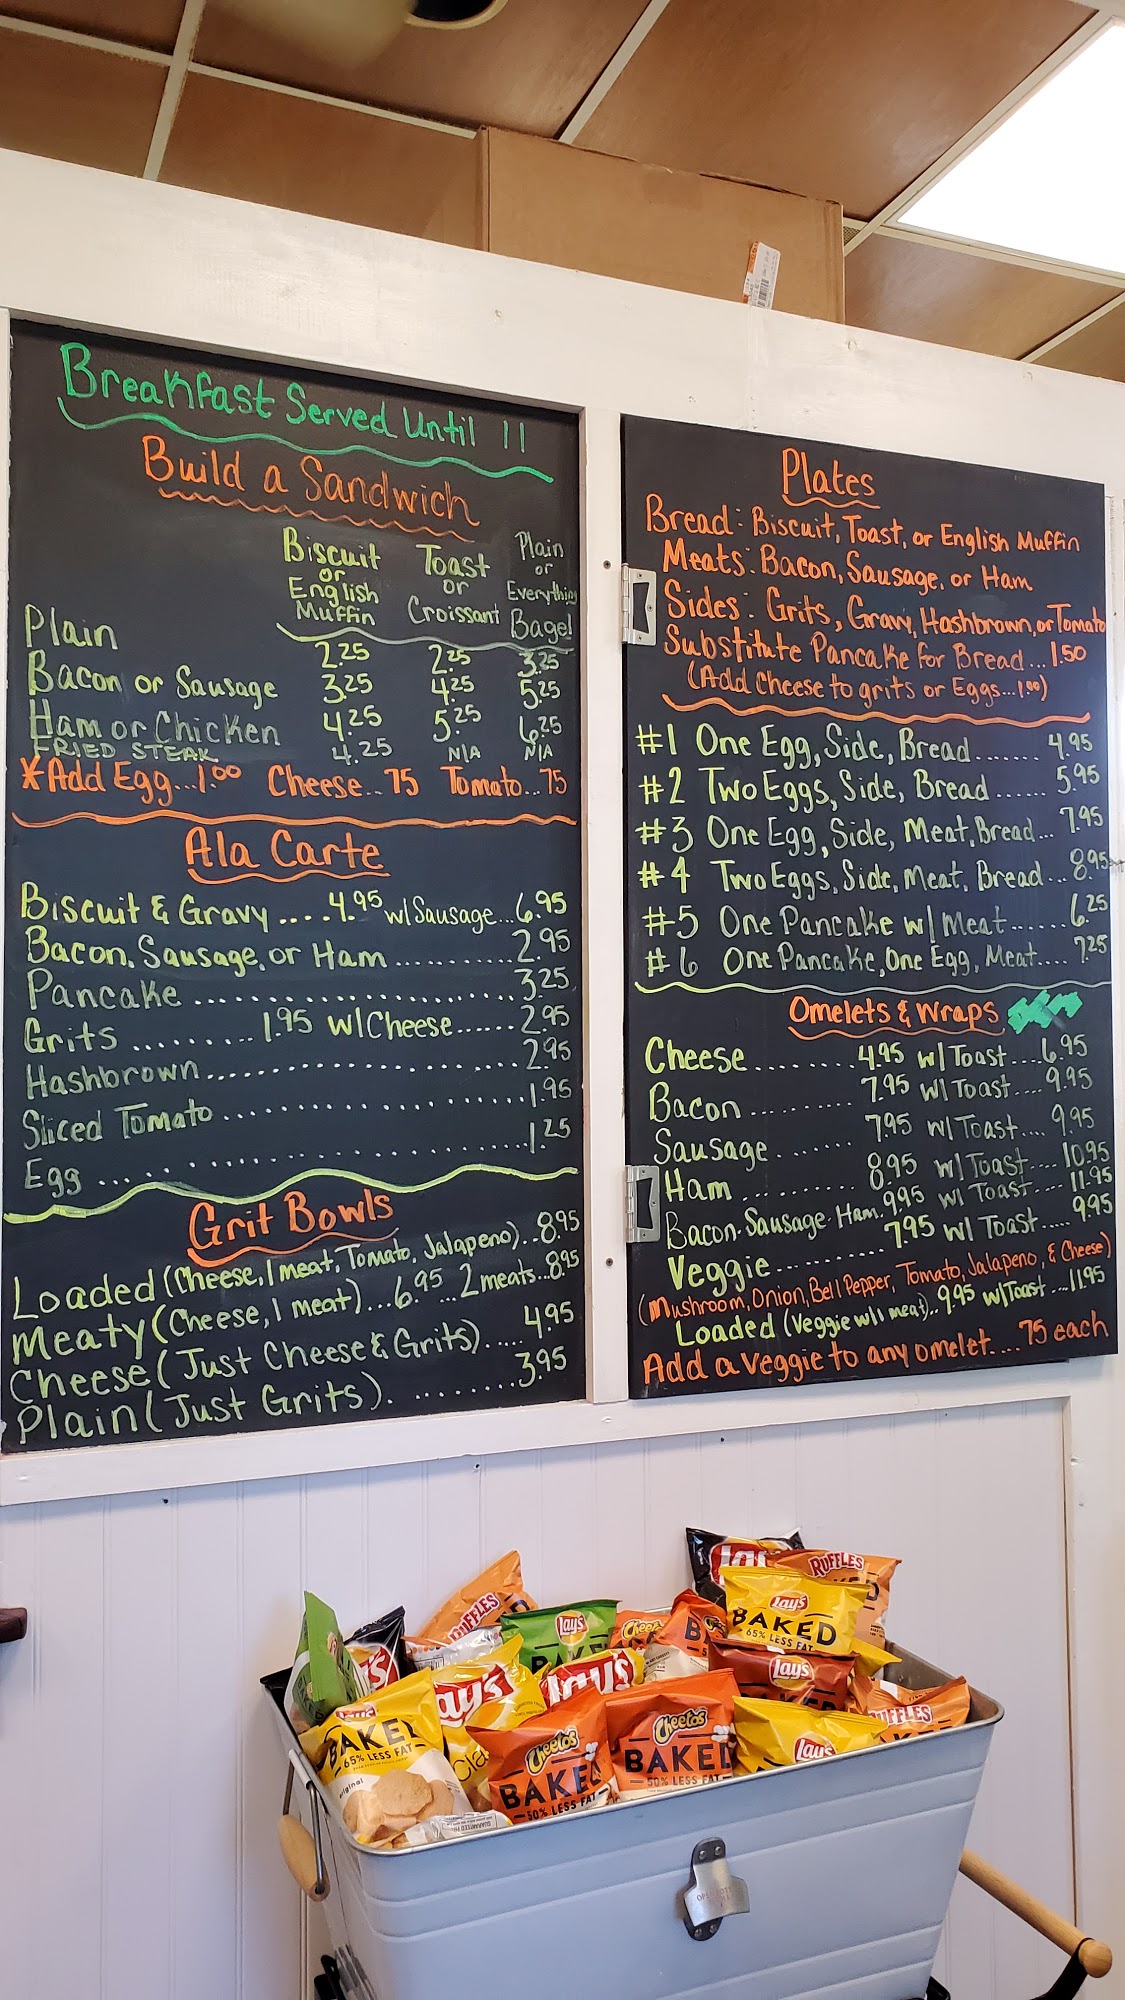 Breakfast Served Until 11
Build a Sandwich
Biscuit or English Muffin
Toast or Croissant
Plain or Everything Bagel
Plain 2.25 2.25 3.25
Bacon or Sausage 3.25 4.25 5.25
Ham or Chicken 4.25 5.25 6.25
FRIED STEAK 4.25 N/A N/A
*Add Egg...1.00 Cheese..75 Tomato...75
Ala Carte
Biscuit & Gravy ....4.95 w/Sausage...6.95
Bacon, Sausage, or Ham ...........2.95
Pancake ........................3.25
Grits .......... 1.95 w/Cheese......2.95
Hashbrown........................2.95
Sliced Tomato ......................1.95
Egg ...............................1.25
Grit Bowls
Loaded (Cheese, 1 meat, Tomato, Jalapeno)...8.95
Meaty (Cheese, 1 meat)...6.95 2 meats...8.95
Cheese (Just Cheese & Grits).....4.95
Plain (Just Grits). .........3.95
Plates
Bread: Biscuit, Toast, or English Muffin
Meats: Bacon, Sausage, or Ham
Sides: Grits, Gravy, Hashbrown, or Tomato
Substitute Pancake for Bread...1.50
(Add Cheese to grits or Eggs...1.00)
#1 One Egg, Side, Bread....... 4.95
#2 Two Eggs, Side, Bread ...... 5.95
#3 One Egg, Side, Meat, Bread... 7.95
#4 Two Eggs, Side, Meat, Bread...8.95
#5 One Pancake w/ Meat....... 6.25
#6 One Pancake, One Egg, Meat.... 7.25
Omelets & Wraps
Cheese ......... 4.95 w/Toast....6.95
Bacon .......... 7.95 w/Toast.... 9.95
Sausage....... 7.95 w/Toast.... 9.95
Ham ........... 8.95 w/Toast.... 10.95
Bacon. Sausage. Ham. 9.95 w/ Toast.... 11.95
Veggie......... 7.95 w/ Toast..... 9.95
(Mushroom, Onion, Bell Pepper, Tomato, Jalapeno, & Cheese)
Loaded (Veggie w/1 meat)..9.95 w/Toast....11.95
Add a veggie to any omelet.... 75 each
Lay's
RUFFLES
Lay's
BAKED
65% LESS FAT
RUFFLES
Lay's
BAKED
Cheetos
Lay's
BAKED
Lay's
Lay's
Lay's
BAKED
65% LESS FAT
Original
Cheetos
BAKED
50% LESS FAT
Cheetos
BAKED
50% LESS FAT
Lay's
BAKED
RUFFLES